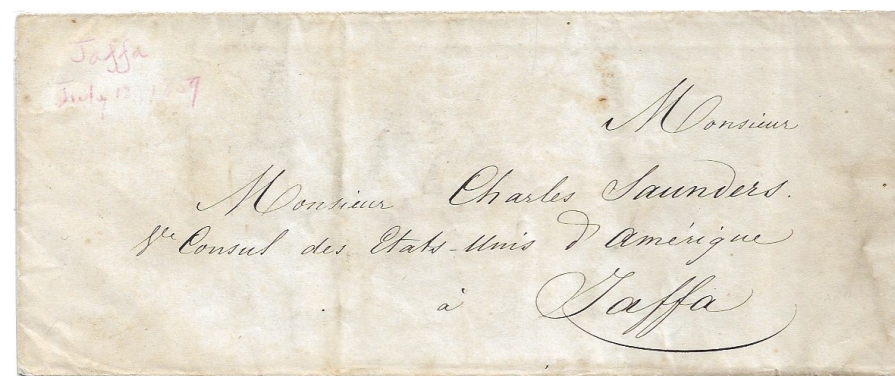 Jaffa
July
Monsieur
Monsieur Charles Saunders.
Vce Consul des Etats-Unis d'Amérique
à Jaffa